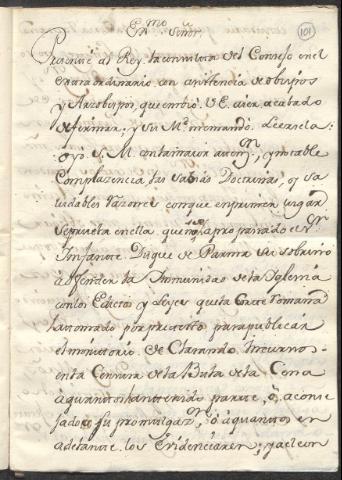 Ex.mo Señor
101
Presenté al Rey la consulta del Consejo en el
extraordinario con asistencia de obispos
y Arzobispos, que embió V.E. aier, acabado
de firmar; y su Mg.d me mandó Leersela:
oyó S. M. con la maior atenc.on, y notable
Complazencia las sabias Doctrinas, y sa
ludables razones con que en primer lugar
se prueba en ella, que no se a propasado el S.r
Infante Duque de Parma su sobrino
a ofender la Inmunidad de la Iglesia
con los Edictos y Leyes que la Corte Romana
ha tomado por pretexto para publicar
el monitorio, declarando Incursos
en la Censura de la Bula de la Cena
a quantos han tenido parte, ó aconse
jado su promulgaz.on, ó a quantos en
adelante los Evidenciaren; y aelcon